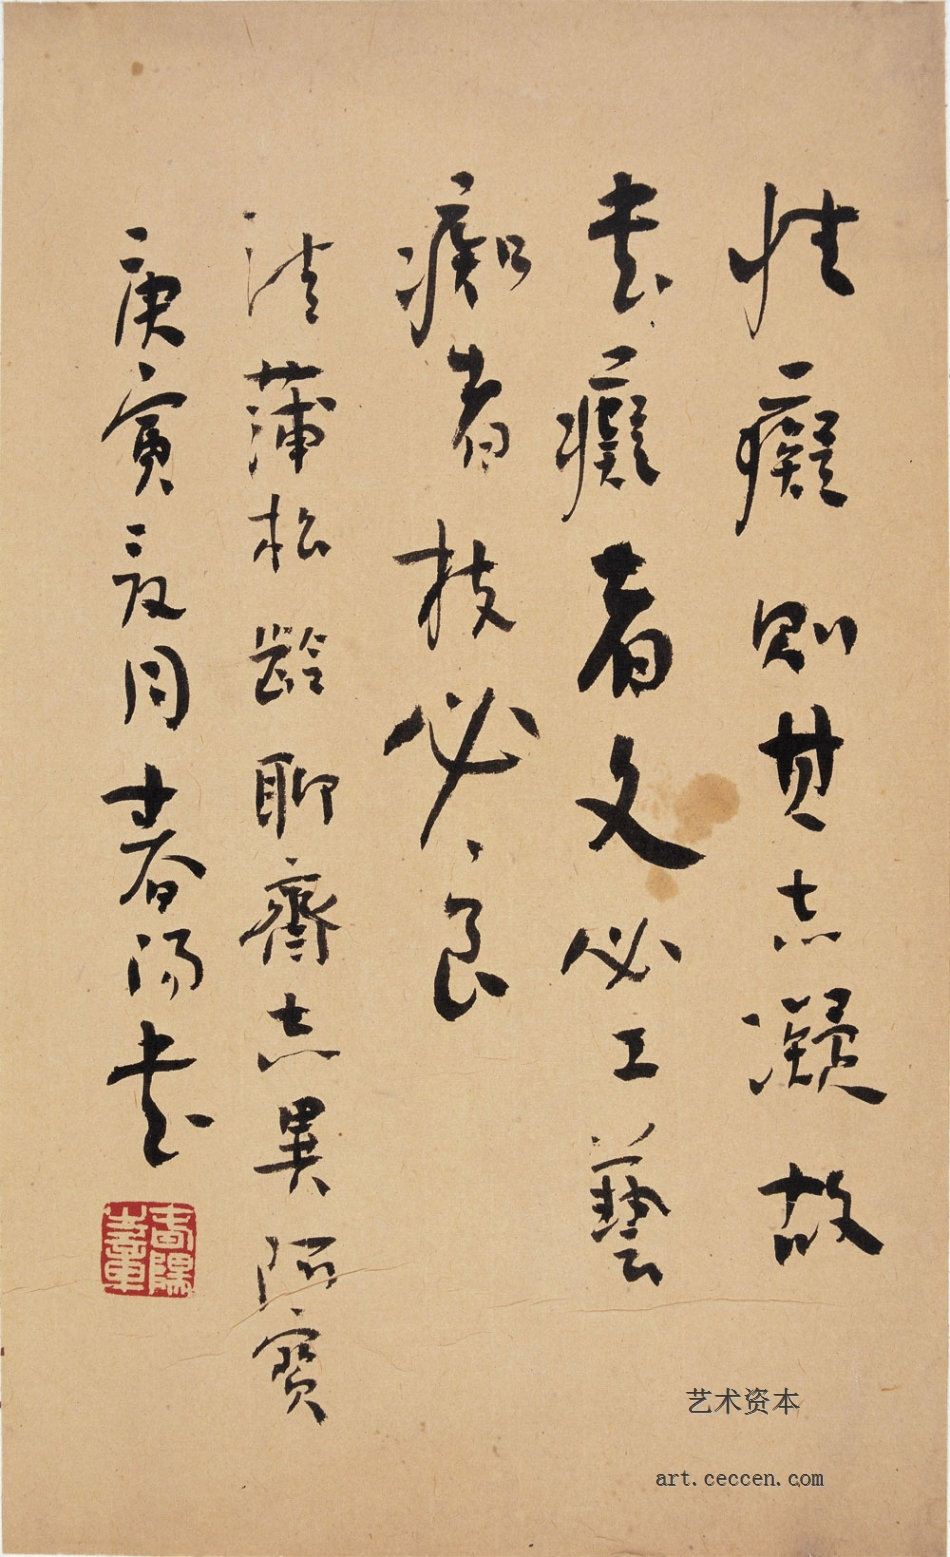 性癡則其志凝故
書癡者文必工藝
痴者技必良
清蒲松齡聊齋志異阿寶
庚寅夏月春陽書
春陽
艺术资本
art.ceccen.com